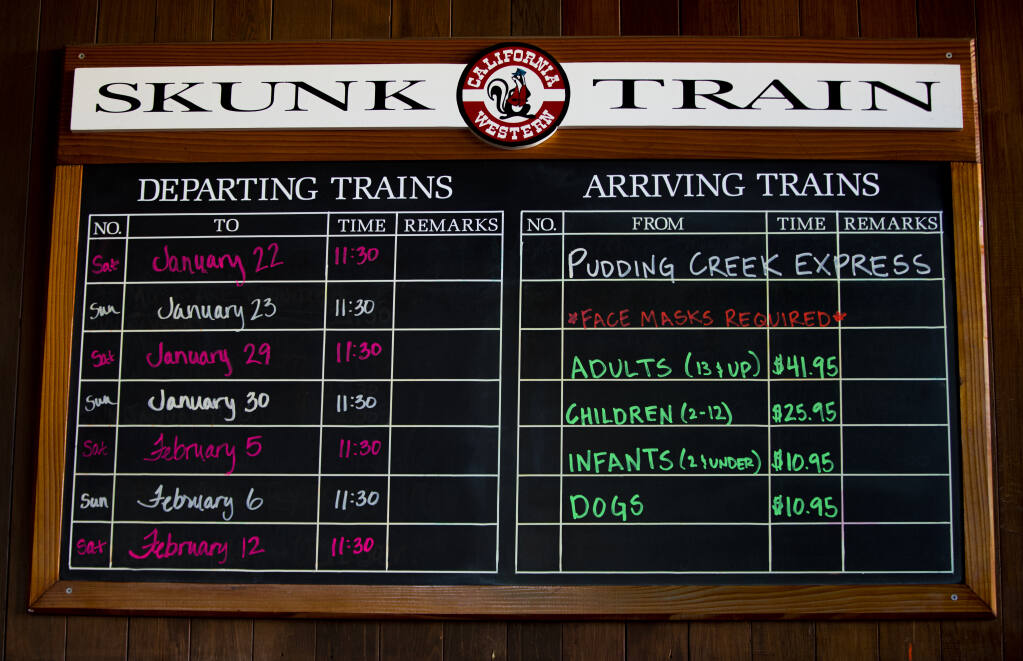 SKUNK TRAIN
CALIFORNIA
WESTERN
DEPARTING TRAINS
NO. TO TIME REMARKS
Sat January 22 11:30
Sun January 23 11:30
Sat January 29 11:30
Sun January 30 11:30
Sat February 5 11:30
Sun February 6 11:30
Sat February 12 11:30
ARRIVING TRAINS
NO. FROM TIME REMARKS
PUDDING CREEK EXPRESS
*FACE MASKS REQUIRED*
ADULTS (13 & UP) $41.95
CHILDREN (2-12) $25.95
INFANTS (2 & UNDER) $10.95
DOGS $10.95